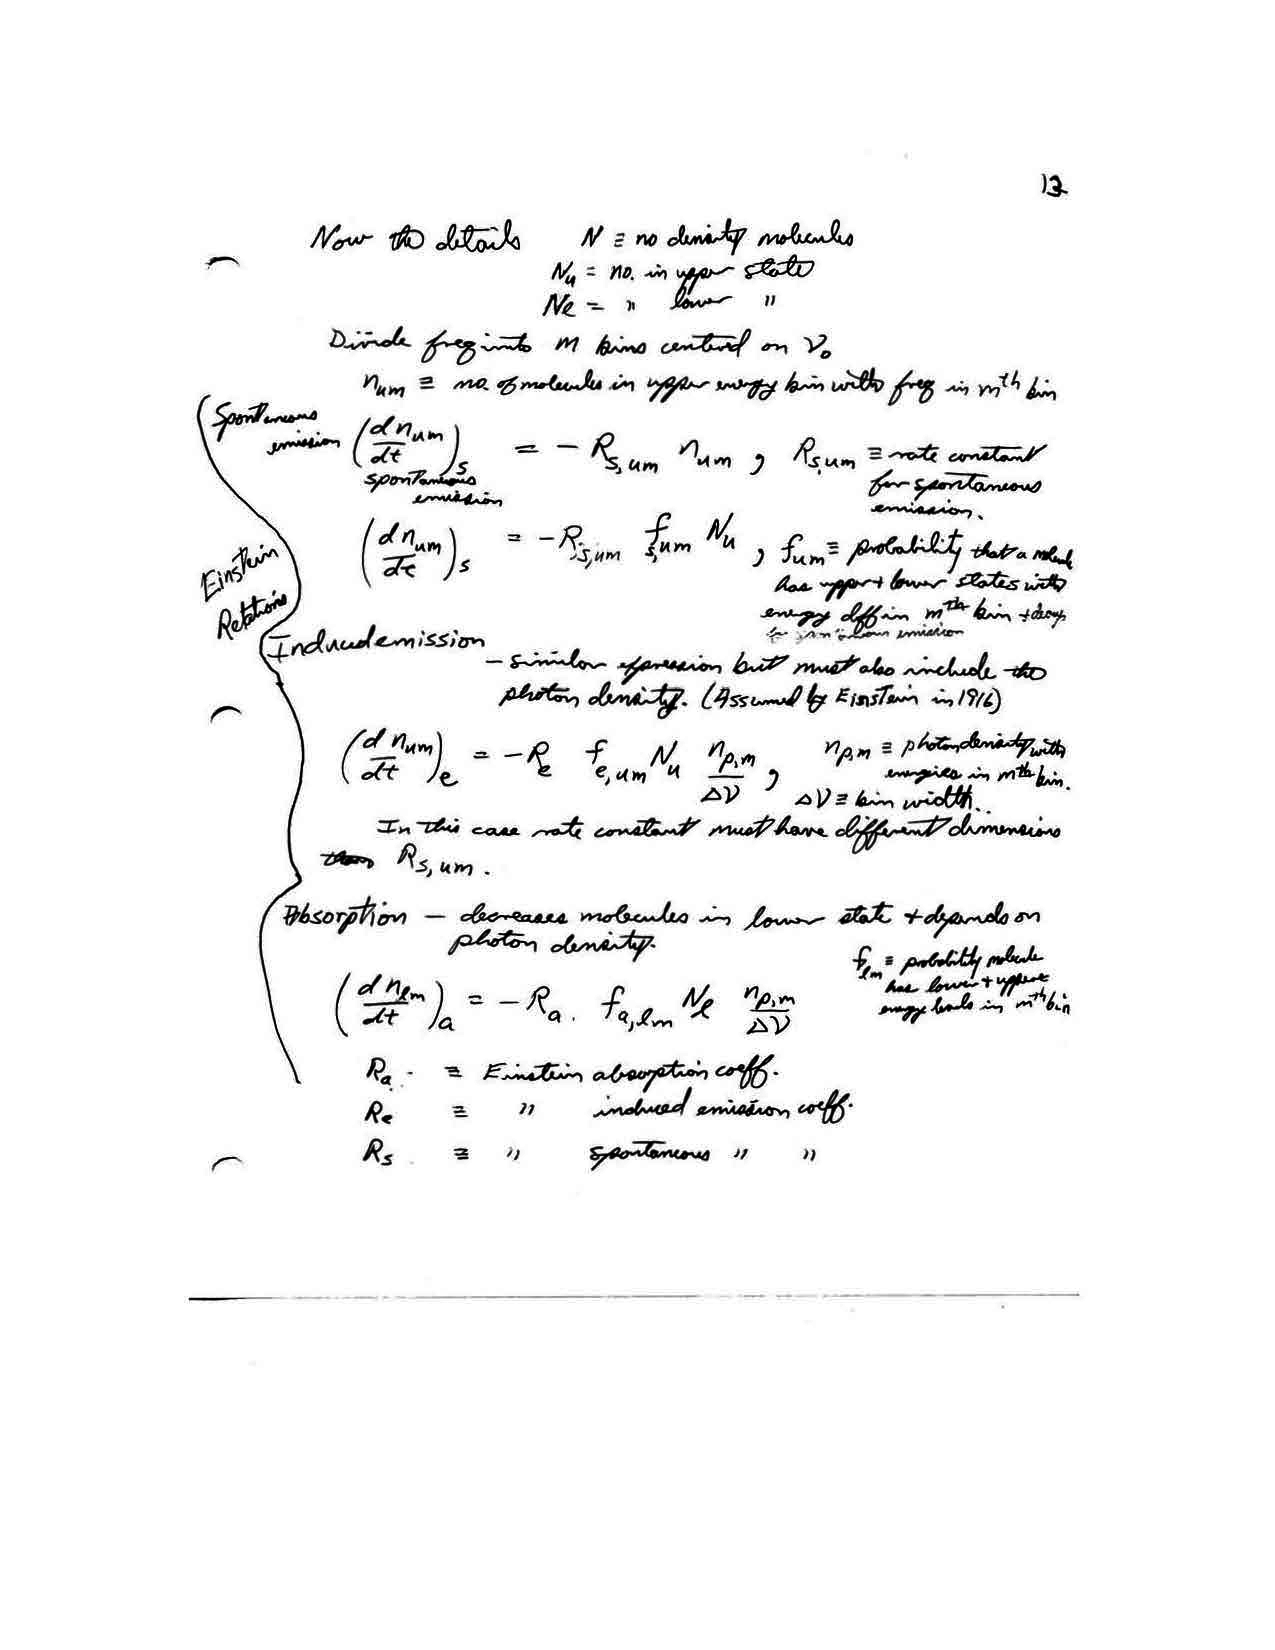 13
Now the details N ≡ no density molecules
Nu = no. in upper state
Nl = " lower "
Divide freq into m bins centered on ν₀
n_um ≡ no. of molecules in upper energy bin with freq in mth bin
Spontaneous
emission (d n_um / dt)_s = - R_s,um n_um , R_s,um ≡ rate constant
spontaneous
emission
for spontaneous
emission.
(d n_um / dt)_s = - R_s,um f_s,um N_u , f_um ≡ probability that a molecule
has upper + lower states with
energy diff in mth bin + decays
by spontaneous emission
Einstein
Relations
Induced emission
- similar expression but must also include the
photon density. (Assumed by Einstein in 1916)
(d n_um / dt)_e = - R_e f_e,um N_u n_p,m / Δν , n_p,m ≡ photon density with
energies in mth bin.
Δν ≡ bin width.
In this case rate constant must have different dimensions
than R_s,um .
Absorption - decreases molecules in lower state + depends on
photon density.
f_lm ≡ probability molecule
has lower + upper
energy levels in mth bin
(d n_lm / dt)_a = - R_a . f_a,lm N_l n_p,m / Δν
R_a ≡ Einstein absorption coeff.
R_e ≡ " induced emission coeff.
R_s ≡ " spontaneous " "